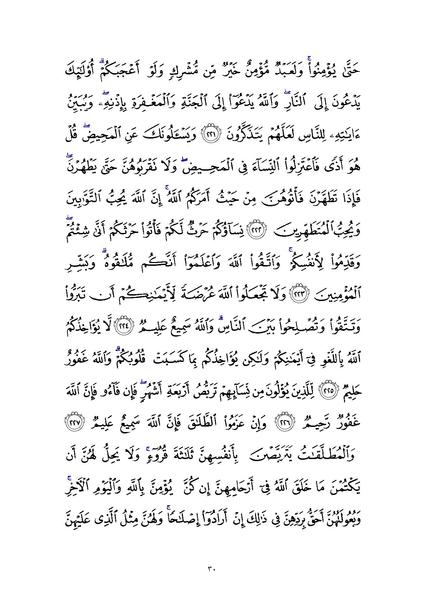 حَتَّىٰ يُؤْمِنُوا۟ ۚ وَلَعَبْدٌ مُّؤْمِنٌ خَيْرٌ مِّن مُّشْرِكٍ وَلَوْ أَعْجَبَكُمْ ۗ أُو۟لَـٰٓئِكَ
يَدْعُونَ إِلَى ٱلنَّارِ ۖ وَٱللَّهُ يَدْعُوٓا۟ إِلَى ٱلْجَنَّةِ وَٱلْمَغْفِرَةِ بِإِذْنِهِۦ ۖ وَيُبَيِّنُ
ءَايَـٰتِهِۦ لِلنَّاسِ لَعَلَّهُمْ يَتَذَكَّرُونَ ﴿٢٢١﴾ وَيَسْـَٔلُونَكَ عَنِ ٱلْمَحِيضِ ۖ قُلْ
هُوَ أَذًى فَٱعْتَزِلُوا۟ ٱلنِّسَآءَ فِى ٱلْمَحِيضِ ۖ وَلَا تَقْرَبُوهُنَّ حَتَّىٰ يَطْهُرْنَ ۖ
فَإِذَا تَطَهَّرْنَ فَأْتُوهُنَّ مِنْ حَيْثُ أَمَرَكُمُ ٱللَّهُ ۚ إِنَّ ٱللَّهَ يُحِبُّ ٱلتَّوَّٰبِينَ
وَيُحِبُّ ٱلْمُتَطَهِّرِينَ ﴿٢٢٢﴾ نِسَآؤُكُمْ حَرْثٌ لَّكُمْ فَأْتُوا۟ حَرْثَكُمْ أَنَّىٰ شِئْتُمْ ۖ
وَقَدِّمُوا۟ لِأَنفُسِكُمْ ۚ وَٱتَّقُوا۟ ٱللَّهَ وَٱعْلَمُوٓا۟ أَنَّكُم مُّلَـٰقُوهُ ۗ وَبَشِّرِ
ٱلْمُؤْمِنِينَ ﴿٢٢٣﴾ وَلَا تَجْعَلُوا۟ ٱللَّهَ عُرْضَةً لِّأَيْمَـٰنِكُمْ أَن تَبَرُّوا۟
وَتَتَّقُوا۟ وَتُصْلِحُوا۟ بَيْنَ ٱلنَّاسِ ۗ وَٱللَّهُ سَمِيعٌ عَلِيمٌ ﴿٢٢٤﴾ لَّا يُؤَاخِذُكُمُ
ٱللَّهُ بِٱللَّغْوِ فِىٓ أَيْمَـٰنِكُمْ وَلَـٰكِن يُؤَاخِذُكُم بِمَا كَسَبَتْ قُلُوبُكُمْ ۗ وَٱللَّهُ غَفُورٌ
حَلِيمٌ ﴿٢٢٥﴾ لِّلَّذِينَ يُؤْلُونَ مِن نِّسَآئِهِمْ تَرَبُّصُ أَرْبَعَةِ أَشْهُرٍ ۖ فَإِن فَآءُو فَإِنَّ ٱللَّهَ
غَفُورٌ رَّحِيمٌ ﴿٢٢٦﴾ وَإِنْ عَزَمُوا۟ ٱلطَّلَـٰقَ فَإِنَّ ٱللَّهَ سَمِيعٌ عَلِيمٌ ﴿٢٢٧﴾
وَٱلْمُطَلَّقَـٰتُ يَتَرَبَّصْنَ بِأَنفُسِهِنَّ ثَلَـٰثَةَ قُرُوٓءٍ ۚ وَلَا يَحِلُّ لَهُنَّ أَن
يَكْتُمْنَ مَا خَلَقَ ٱللَّهُ فِىٓ أَرْحَامِهِنَّ إِن كُنَّ يُؤْمِنَّ بِٱللَّهِ وَٱلْيَوْمِ ٱلْـَٔاخِرِ ۚ
وَبُعُولَتُهُنَّ أَحَقُّ بِرَدِّهِنَّ فِى ذَٰلِكَ إِنْ أَرَادُوٓا۟ إِصْلَـٰحًا ۚ وَلَهُنَّ مِثْلُ ٱلَّذِى عَلَيْهِنَّ
٣٠